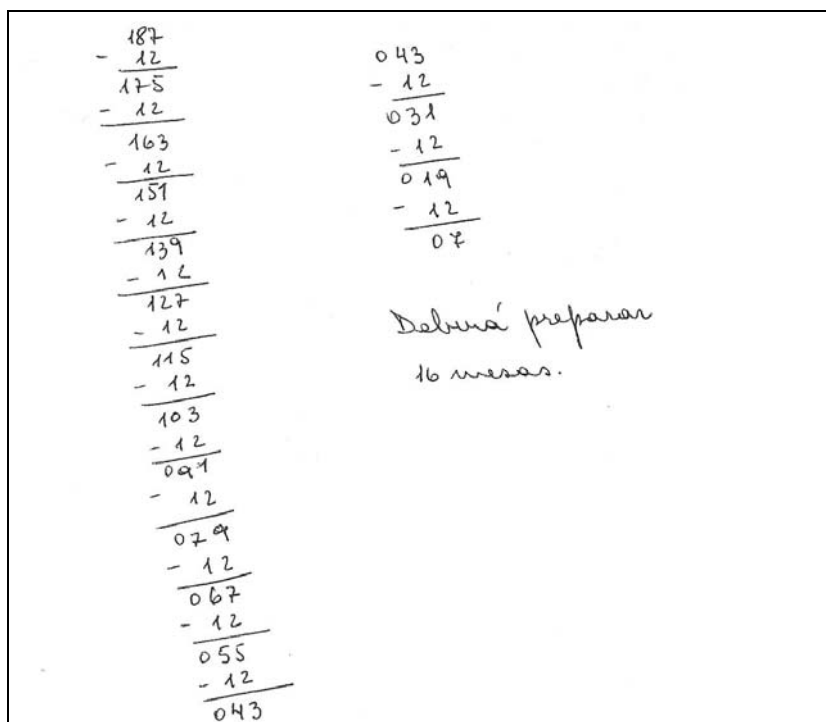 187
- 12
175
- 12
163
- 12
151
- 12
139
- 12
127
- 12
115
- 12
103
- 12
091
- 12
079
- 12
067
- 12
055
- 12
043
043
- 12
031
- 12
019
- 12
07
Deberá preparar
16 mesas.